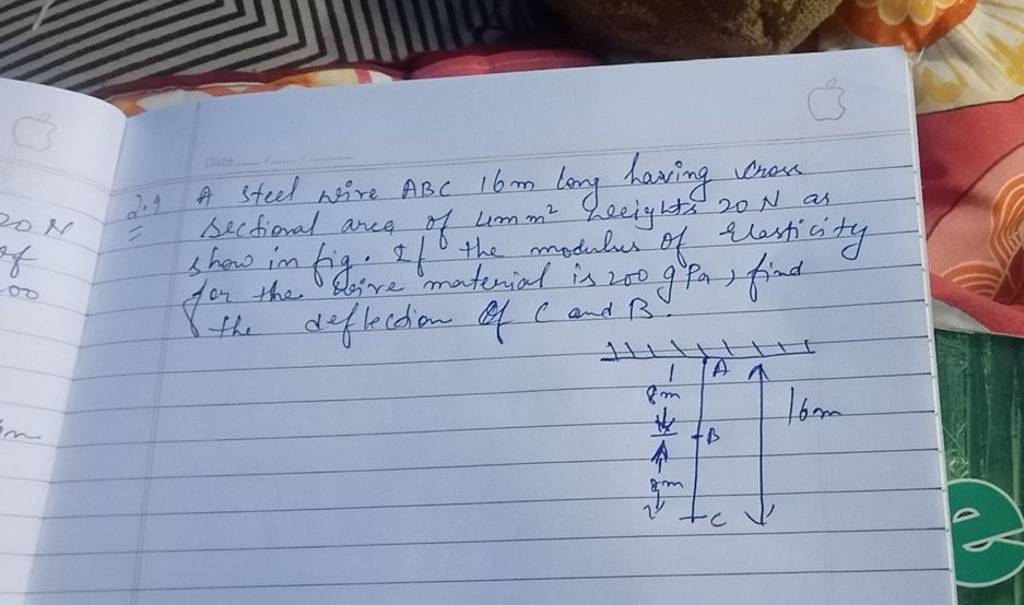 Date
2.9 A steel wire ABC 16m long having cross
= sectional area of 4mm² weights 20 N as
show in fig. If the modulus of elasticity
for the wire material is 200 gPa, find
the deflection of C and B.
A
8m
16m
B
8m
C
20 N
of
00
m
e